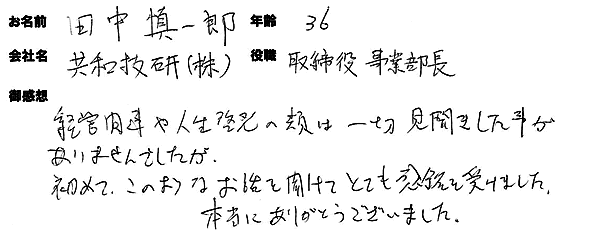 お名前 田中 慎一郎 年齢 36
会社名 共和技研(株) 役職 取締役 事業部長
御感想
経営内事や人生啓発の類は一切見聞きした事が
ありませんでしたが、
初めて、このようなお話を聞けてとても感銘を受けました。
本当にありがとうございました。